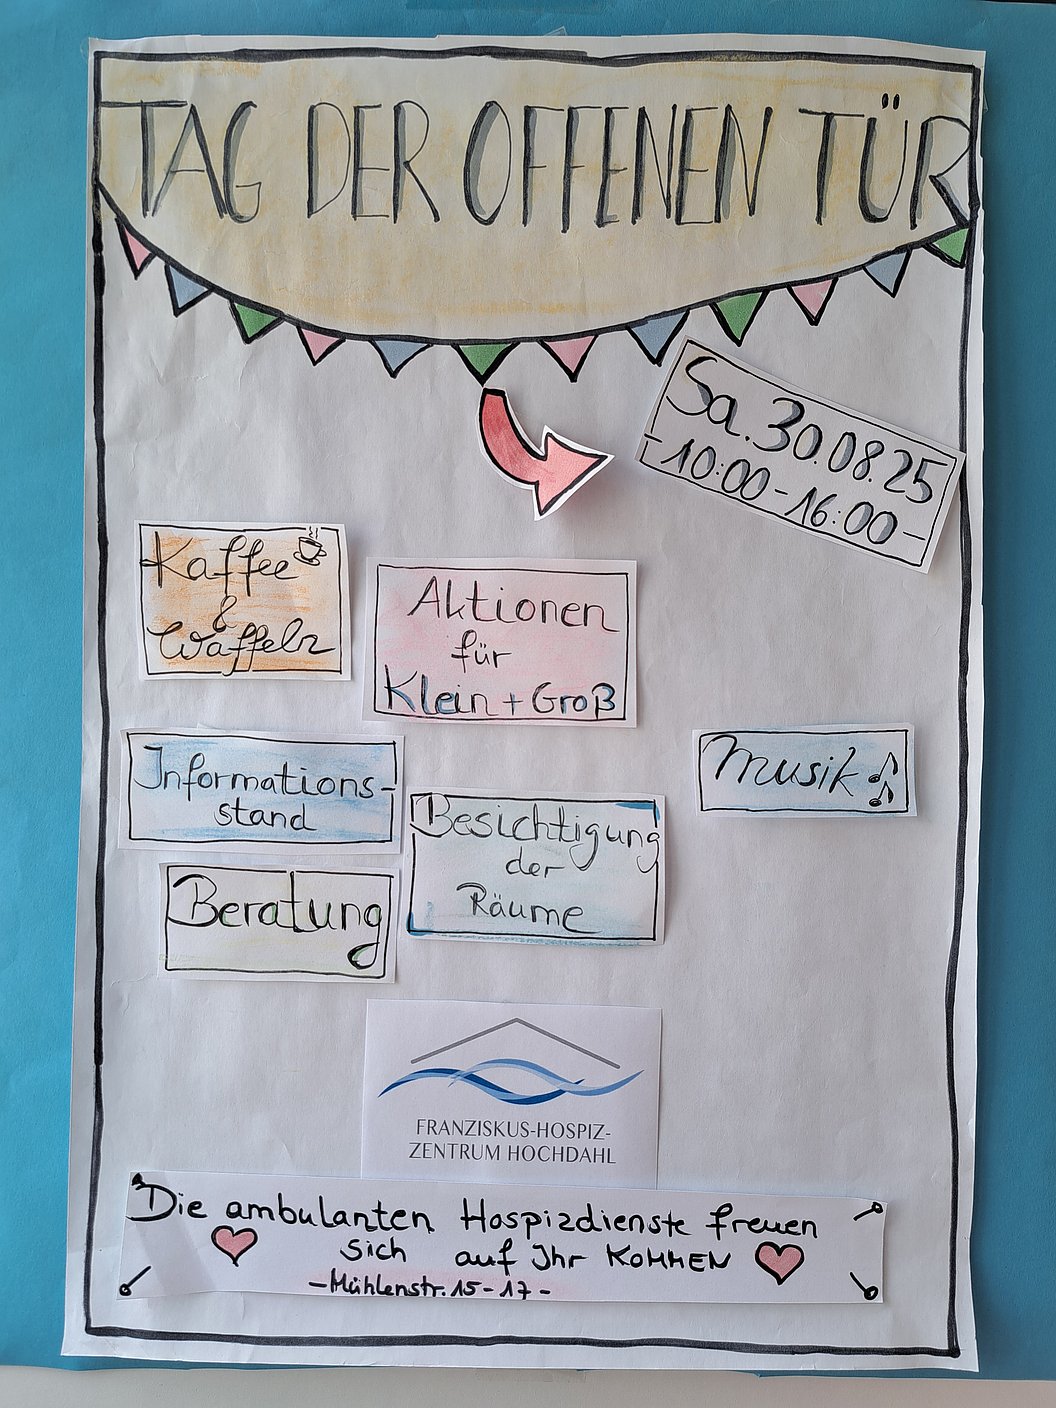 TAG DER OFFENEN TÜR
Sa. 30.08.25
-10:00-16:00-
Kaffee
&
Waffeln
Aktionen
für
Klein + Groß
Informations-
stand
Musik
Besichtigung
der
Räume
Beratung
FRANZISKUS-HOSPIZ-
ZENTRUM HOCHDAHL
Die ambulanten Hospizdienste freuen
sich auf Ihr KOMMEN
-Mühlenstr. 15-17-